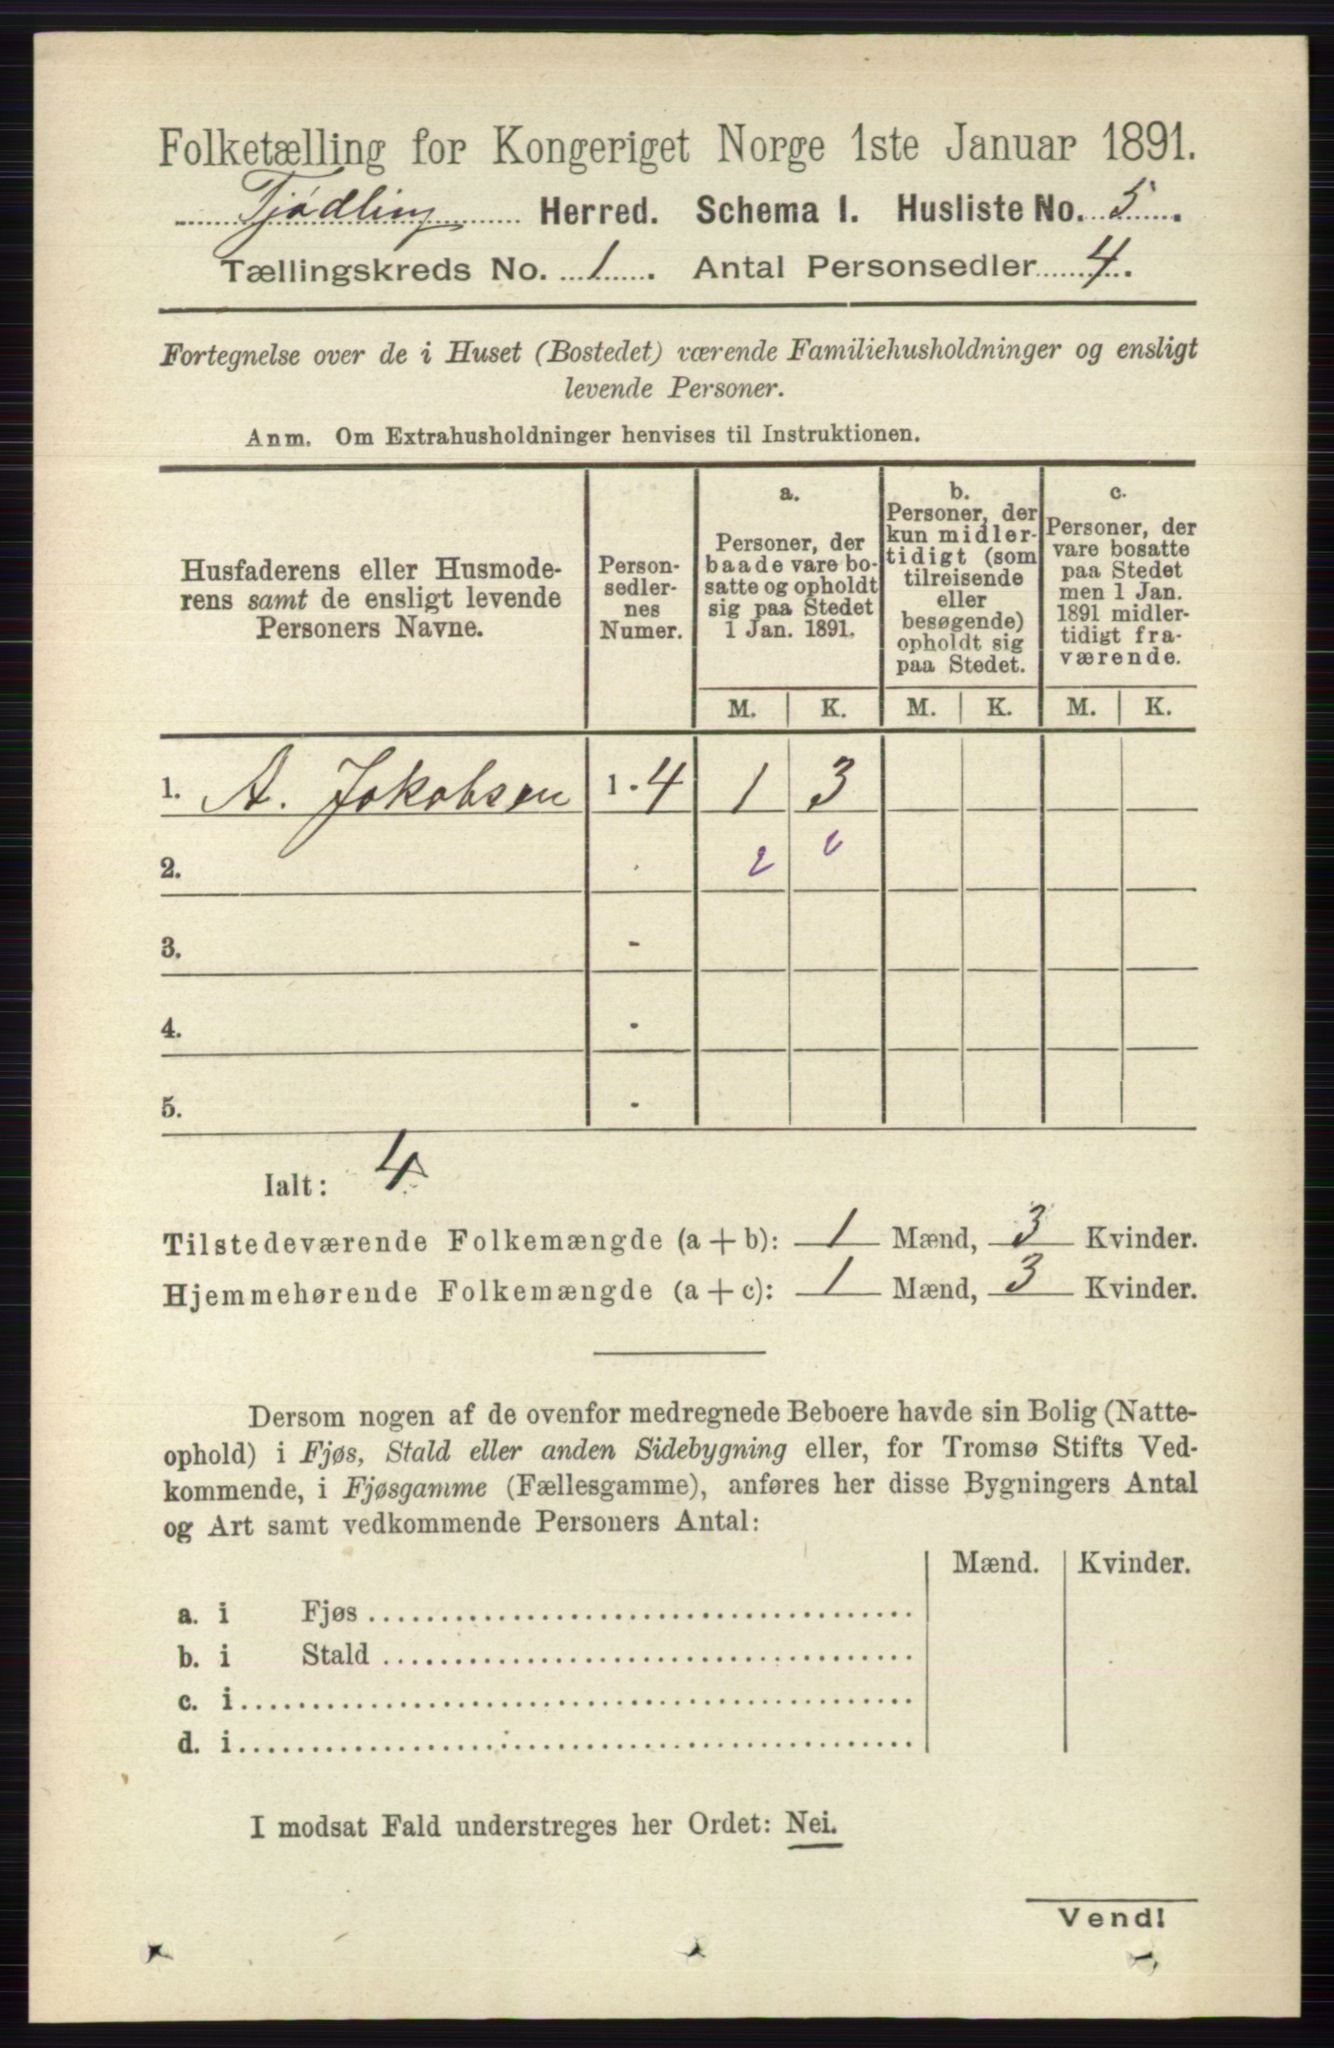 Folketælling for Kongeriget Norge 1ste Januar 1891.
Tjødling Herred. Schema I. Husliste No. 5.
Tællingskreds No. 1. Antal Personsedler 4.
Fortegnelse over de i Huset (Bostedet) værende Familiehusholdninger og ensligt
levende Personer.
Anm. Om Extrahusholdninger henvises til Instruktionen.
Husfaderens eller Husmode-
rens samt de ensligt levende
Personers Navne.
Person-
sedler-
nes
Numer.
a.
Personer, der
baade vare bo-
satte og opholdt
sig paa Stedet
1 Jan. 1891.
b.
Personer, der
kun midler-
tidigt (som
tilreisende
eller
besøgende)
opholdt sig
paa Stedet.
c.
Personer, der
vare bosatte
paa Stedet
men 1 Jan.
1891 midler-
tidigt fra-
værende.
M. K. M. K. M. K.
1. A. Jokobsen 1 - 4 1 3
2. 2 2
3. -
4. -
5. -
Ialt: 4
Tilstedeværende Folkemængde (a + b): 1 Mænd, 3 Kvinder.
Hjemmehørende Folkemængde (a + c): 1 Mænd, 3 Kvinder.
Dersom nogen af de ovenfor medregnede Beboere havde sin Bolig (Natte-
ophold) i Fjøs, Stald eller anden Sidebygning eller, for Tromsø Stifts Ved-
kommende, i Fjøsgamme (Fællesgamme), anføres her disse Bygningers Antal
og Art samt vedkommende Personers Antal:
Mænd. Kvinder.
a. i Fjøs
b. i Stald
c. i
d. i
I modsat Fald understreges her Ordet: Nei.
Vend!